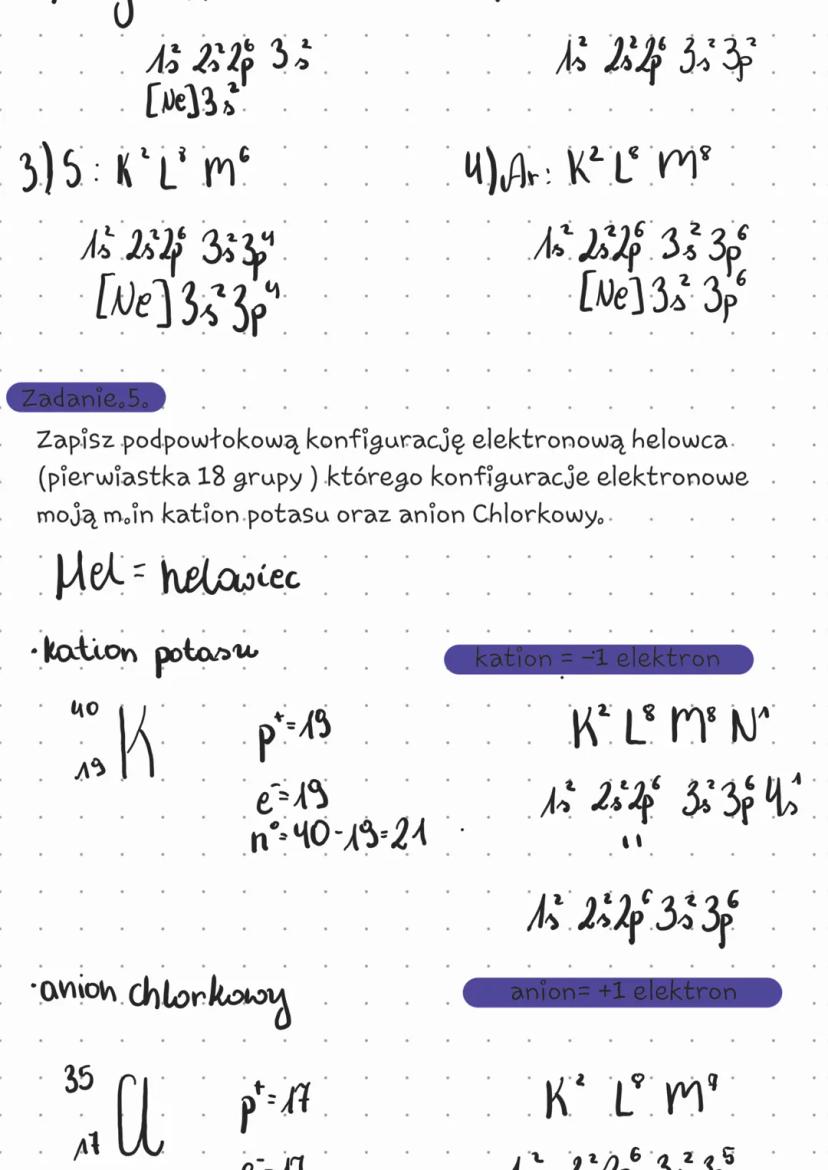 1s² 2s²2p⁶ 3s²
[Ne]3s²
1s² 2s²2p⁶ 3s²3p²
3) S: K² L⁸ M⁶
1s² 2s²2p⁶ 3s²3p⁴
[Ne]3s²3p⁴
4) Ar: K² L⁸ M⁸
1s² 2s²2p⁶ 3s²3p⁶
[Ne]3s²3p⁶
Zadanie.5.
Zapisz podpowłokową konfigurację elektronową helowca
(pierwiastka 18 grupy ) którego konfiguracje elektronowe
moją m.in kation potasu oraz anion Chlorkowy.
Hel = helowiec
·kation potasu
kation = -1 elektron
⁴⁰₁₉K
p⁺=19
e⁻=19
n⁰=40-19=21
K² L⁸ M⁸ N¹
1s² 2s²2p⁶ 3s²3p⁶ 4s¹
1s² 2s²2p⁶ 3s²3p⁶
·anion chlorkowy
anion= +1 elektron
³⁵₁₇Cl
p⁺=17
K² L⁸
e⁻=17
1s² 2s²2p⁶ 3s²3p⁵